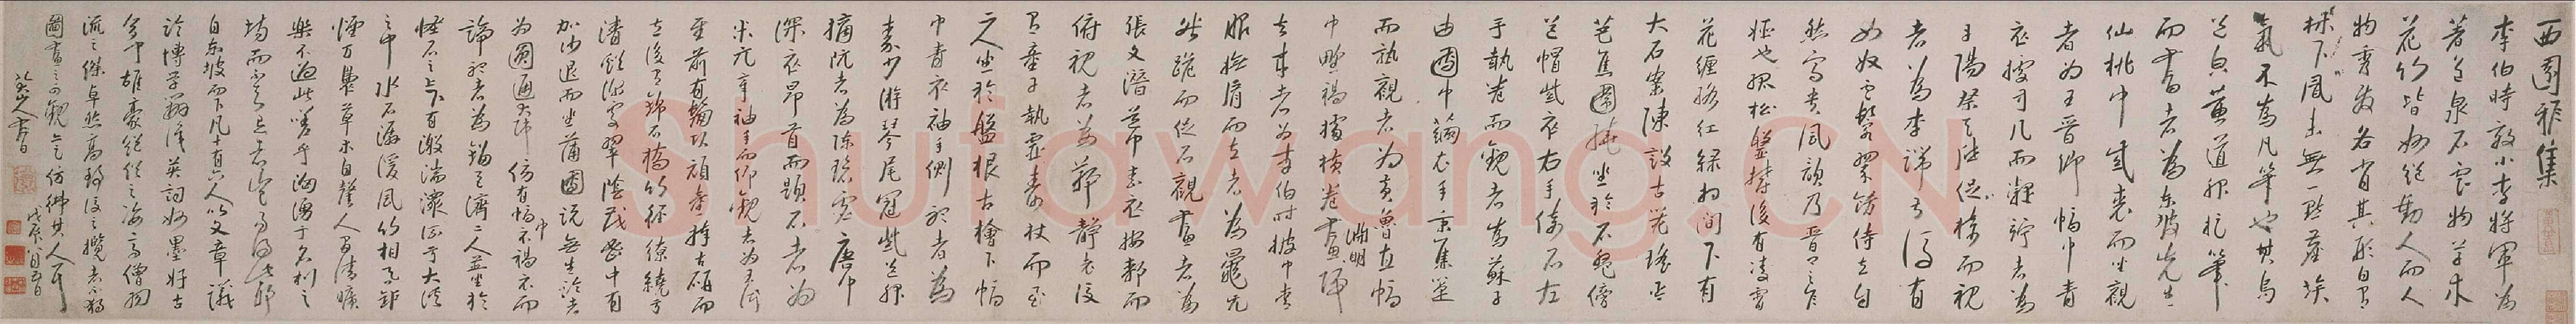 西園雅集
李伯時效小李將軍為
著色泉石雲物草木
花竹皆妙絕動人而人
物秀發各肖其形自有
林下風味無一點塵埃
氣不為凡筆也其烏
黃道服捉筆
而書者為東坡先生
仙桃巾紫裘而坐觀
者為王晉卿幅巾青
衣據方几而凝竚者為
丹陽蔡天啟捉椅而視
者為李端叔後有
女奴雲鬟翠飾侍立自
然富貴風韻乃晉卿之家
姬也孤松盤鬱後有凌霄
花纏絡紅綠相間下有
大石案陳設古器瑤琴
芭蕉圍繞坐於石盤傍
道帽紫衣右手倚石左
手執卷而觀者為蘇子
由團巾繭衣手秉蕉箑
而熟觀者為黃魯直幅
巾野褐據橫卷畫淵明歸
去來者為李伯時披巾青
服撫肩而立者為晁无
咎跪而捉石觀畫者為
張文潛道巾素衣按膝而
俯視者為鄭靜老後
有童子執靈壽杖而立
二人坐於盤根古檜下幅
巾青衣袖手側聽者為
秦少游琴尾冠紫道服
摘阮者為陳碧虛唐巾
深衣昂首而題石者為
米元章袖手而仰觀者為王仲
至前有鬅頭頑童捧古硯而
立後有錦石橋竹徑繚繞於
清谿深處翠陰茂密中有
袈裟坐蒲團說無生論者
為圓通大師傍有幅巾褐衣而
諦聽者為劉巨濟二人並坐於
怪石之上下有激湍潀流於大溪
之中水石潺湲風竹相吞爐
煙方裊草木自馨人間清曠
樂不過此嗟乎洶湧于名利之
場而不知退者豈易得此耶
自東坡而下凡十有六人以文章議
論博學辨識英詞妙墨好古
多聞雄豪絕俗之資高僧羽
流之傑卓然高致後之攬者不獨
圖畫之可觀亦足彷彿其人耳
戊辰八月五日
八大山人書
Shufawang.CN